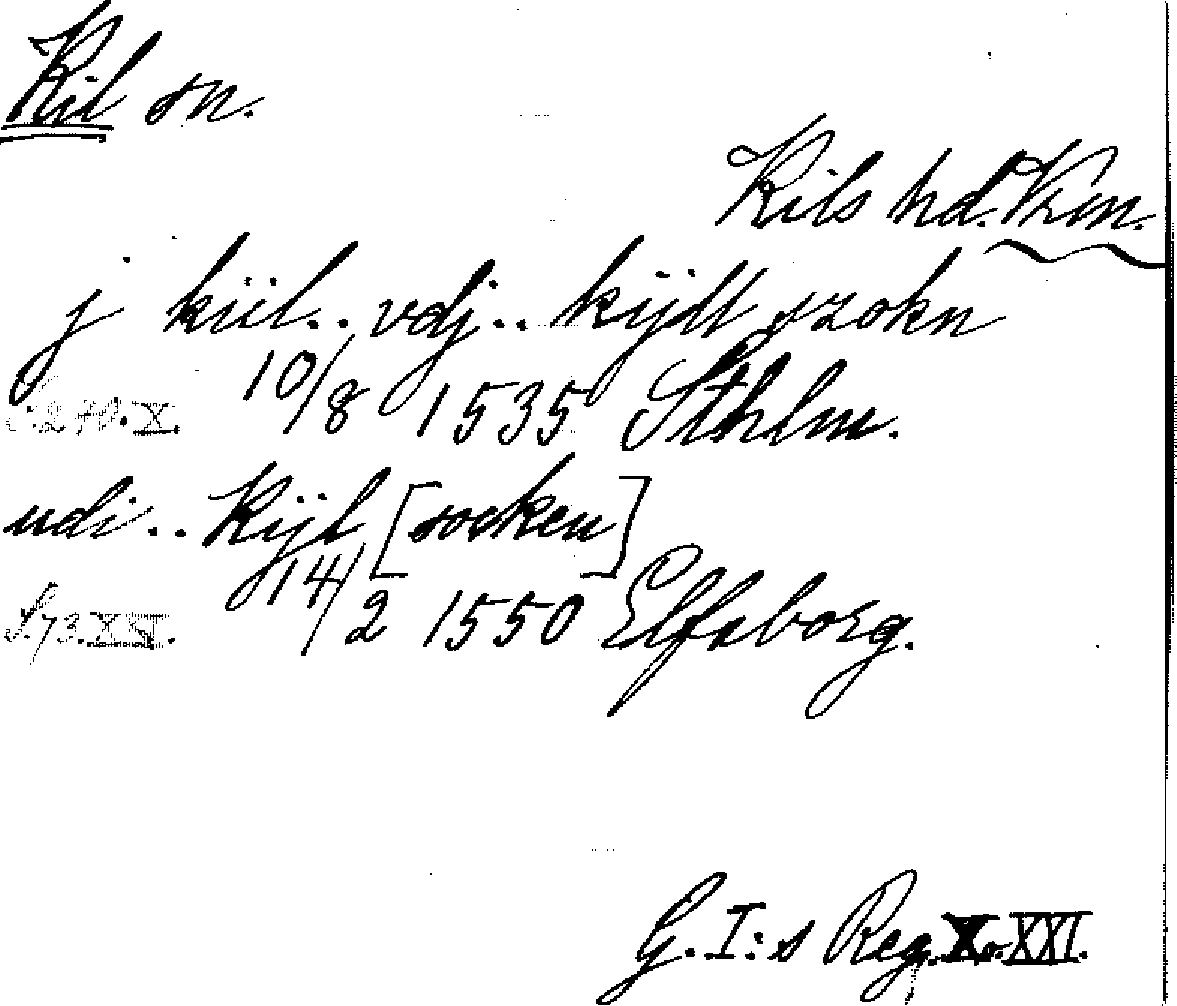 Kil sn.
Kils hd. Vrm.
j kiil.. vdj.. kijdt szokn
10/8 1535 Sthlm.
S. 240. X.
udi.. Kijl [socken]
14/2 1550 Elfsborg.
S. 73. XXI.
G. I:s Reg. X o. XXI.